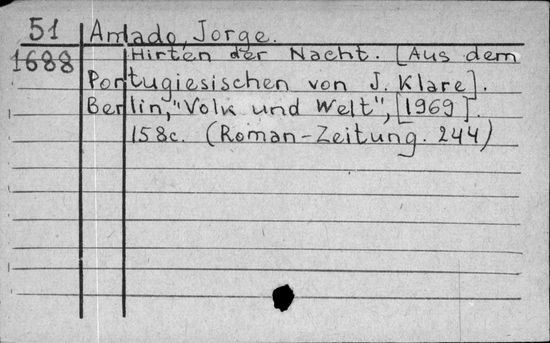 51 Amado, Jorge.
1688 Hirten der Nacht. [Aus dem
Portugiesischen von J. Klare].
Berlin, "Volk und Welt", [1969].
158c. (Roman-Zeitung. 244)